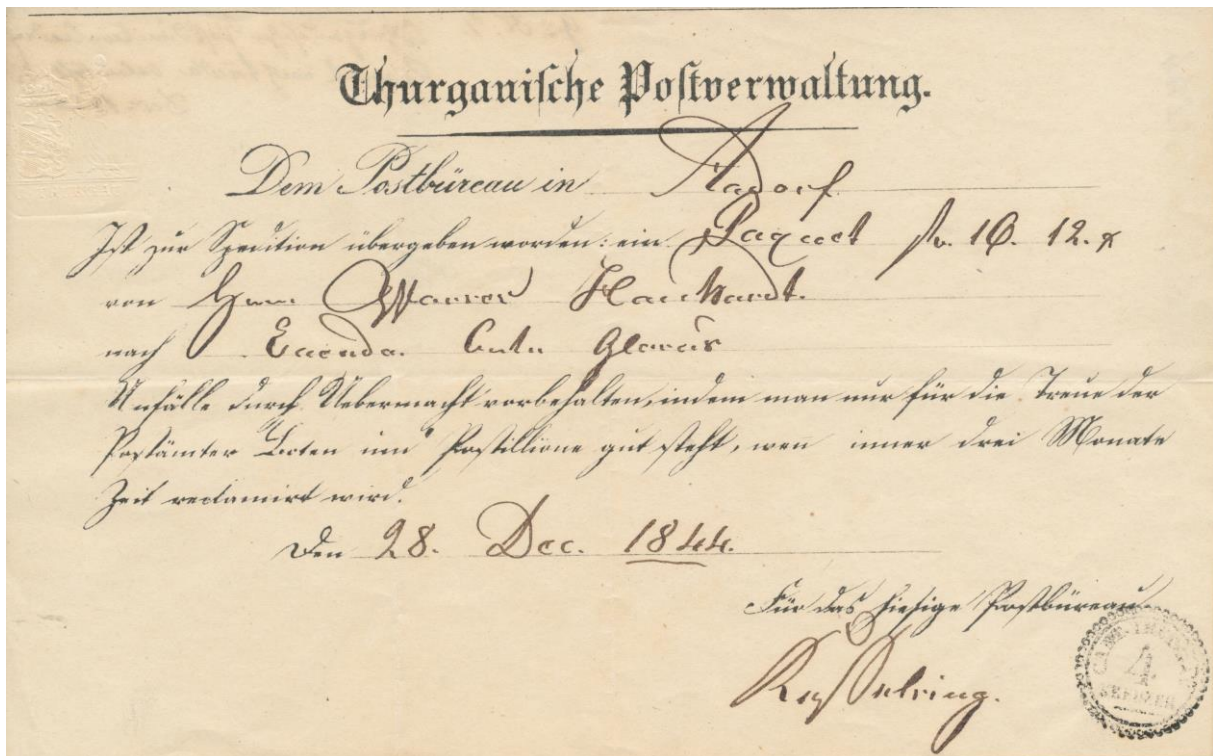 Thurgauische Postverwaltung.
Dem Postbüreau in Aadorf
Ist zur Spedition übergeben worden: ein Paquet 16. 12. x
von Herrn Pfarrer Hanhardt.
nach Ennenda. Cantn Glarus
Unfälle durch Uebermacht vorbehalten, indem man nur für die Treue der
Postämter Boten und Postillione gut steht, wen inner drei Monate
Zeit reclamirt wird.
Den 28. Dec. 1844.
Für das hiesige Postbüreau
Kesselring.
4